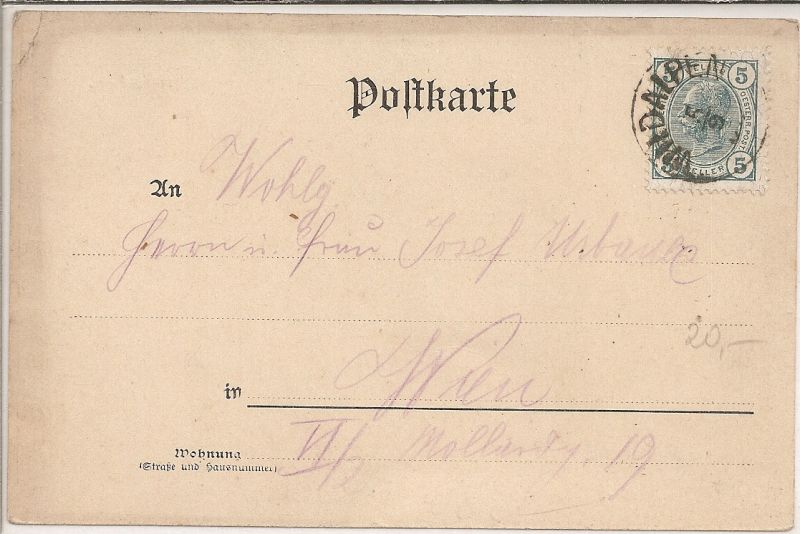 Postkarte
5 5
OESTERR. POST
5
HELLER
WILDALPEN
An Wohlg
Herrn u. Frau Josef Urbanek
20,—
in Wien
Wohnung
(Straße und Hausnummer)
VI/2 Mollardg. 19